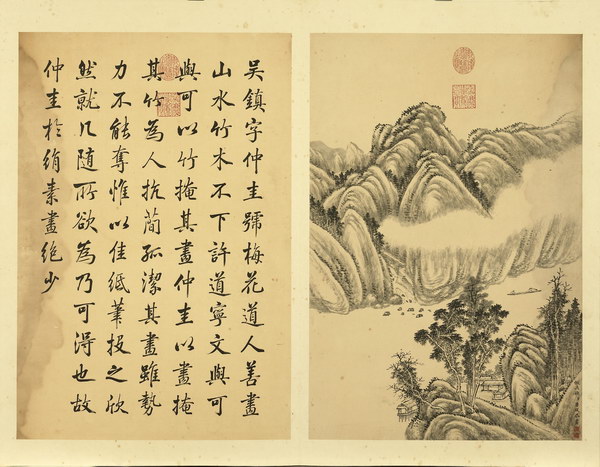 吳鎮字仲圭號梅花道人善畫
山水竹木不下許道寧文與可
與可以竹掩其畫仲圭以畫掩
其竹為人抗簡孤潔其畫雖勢
力不能奪惟以佳紙筆投之欣
然就几隨所欲為乃可得也故
仲圭於絹素畫絶少